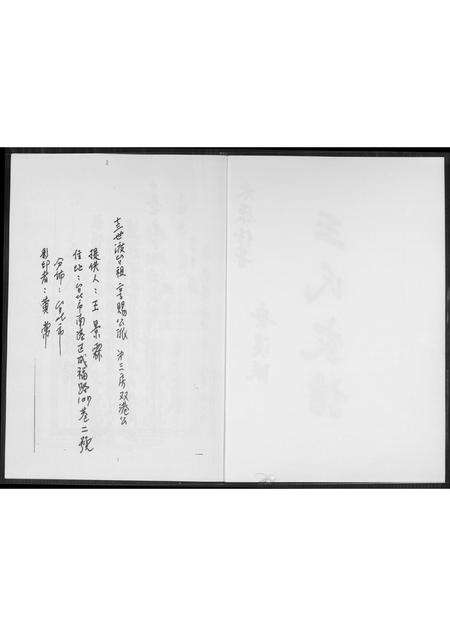 十三世渡台祖 言賜公派 第三房双港公
提供人：王景霖
住址：台北市南港区成福路107巷二號
分佈：台北市
影印者：黄
王氏族譜